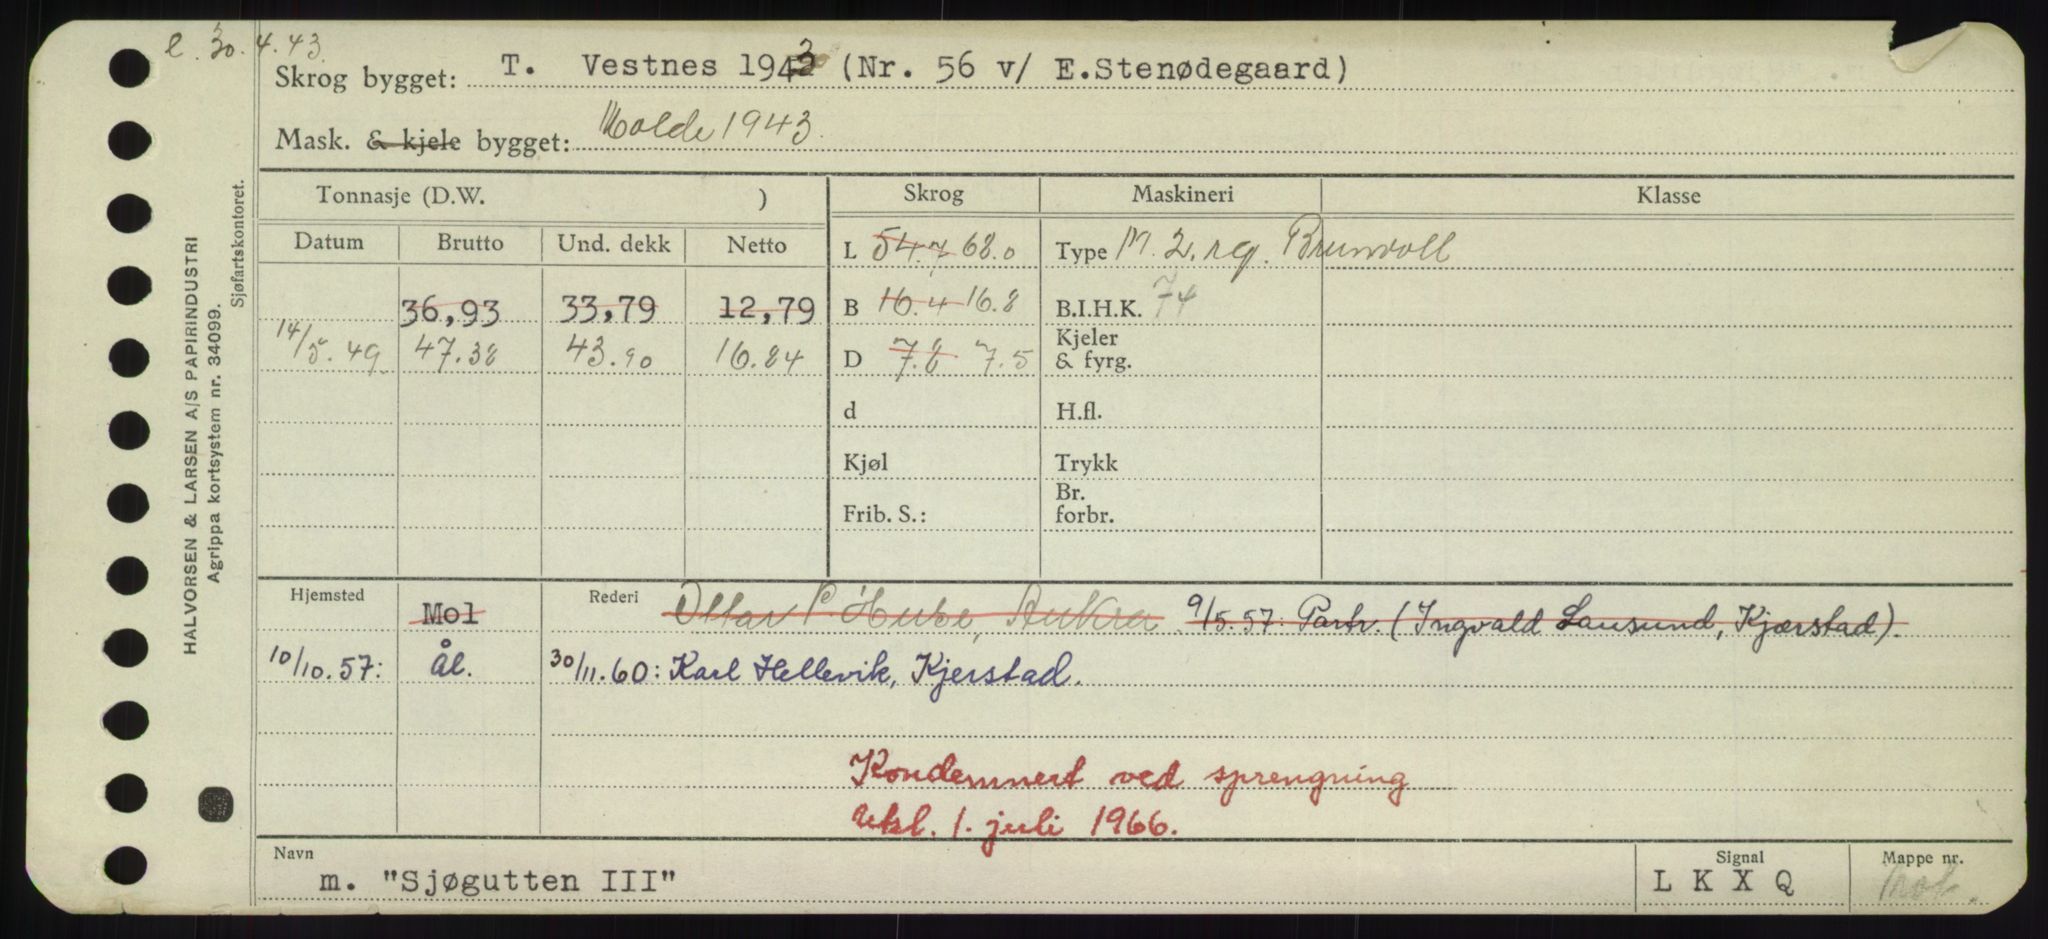 e. 30.4.43
Skrog bygget: T. Vestnes 1943 (Nr. 56 v/ E.Stenødegaard)
Mask. & kjele bygget: Molde 1943.
HALVORSEN & LARSEN A/S PAPIRINDUSTRI
Agrippa kortsystem nr. 34099.
Sjøfartskontoret.
Tonnasje (D.W. ) Skrog Maskineri Klasse
Datum Brutto Und. dekk Netto
L 54.7 68.0 Type M. 2. reg. Brunvoll
36,93 33,79 12,79 B 16.4 16.8 B.I.H.K. 74
14/5.49 47.38 43.90 16.84 D 7.8 7.5 Kjeler & fyrg.
d H.fl.
Kjøl Trykk
Frib. S.: Br. forbr.
Hjemsted Mol Rederi Ottar P. Huse, Aukra 9/5.57: Partr. (Ingvald Lausund, Kjærstad).
10/10.57: Ål. 30/11.60: Karl Hellevik, Kjerstad.
Kondemnert ved sprengning
Utsl. 1. juli 1966.
Navn Signal Mappe nr.
m. "Sjøgutten III" L K X Q